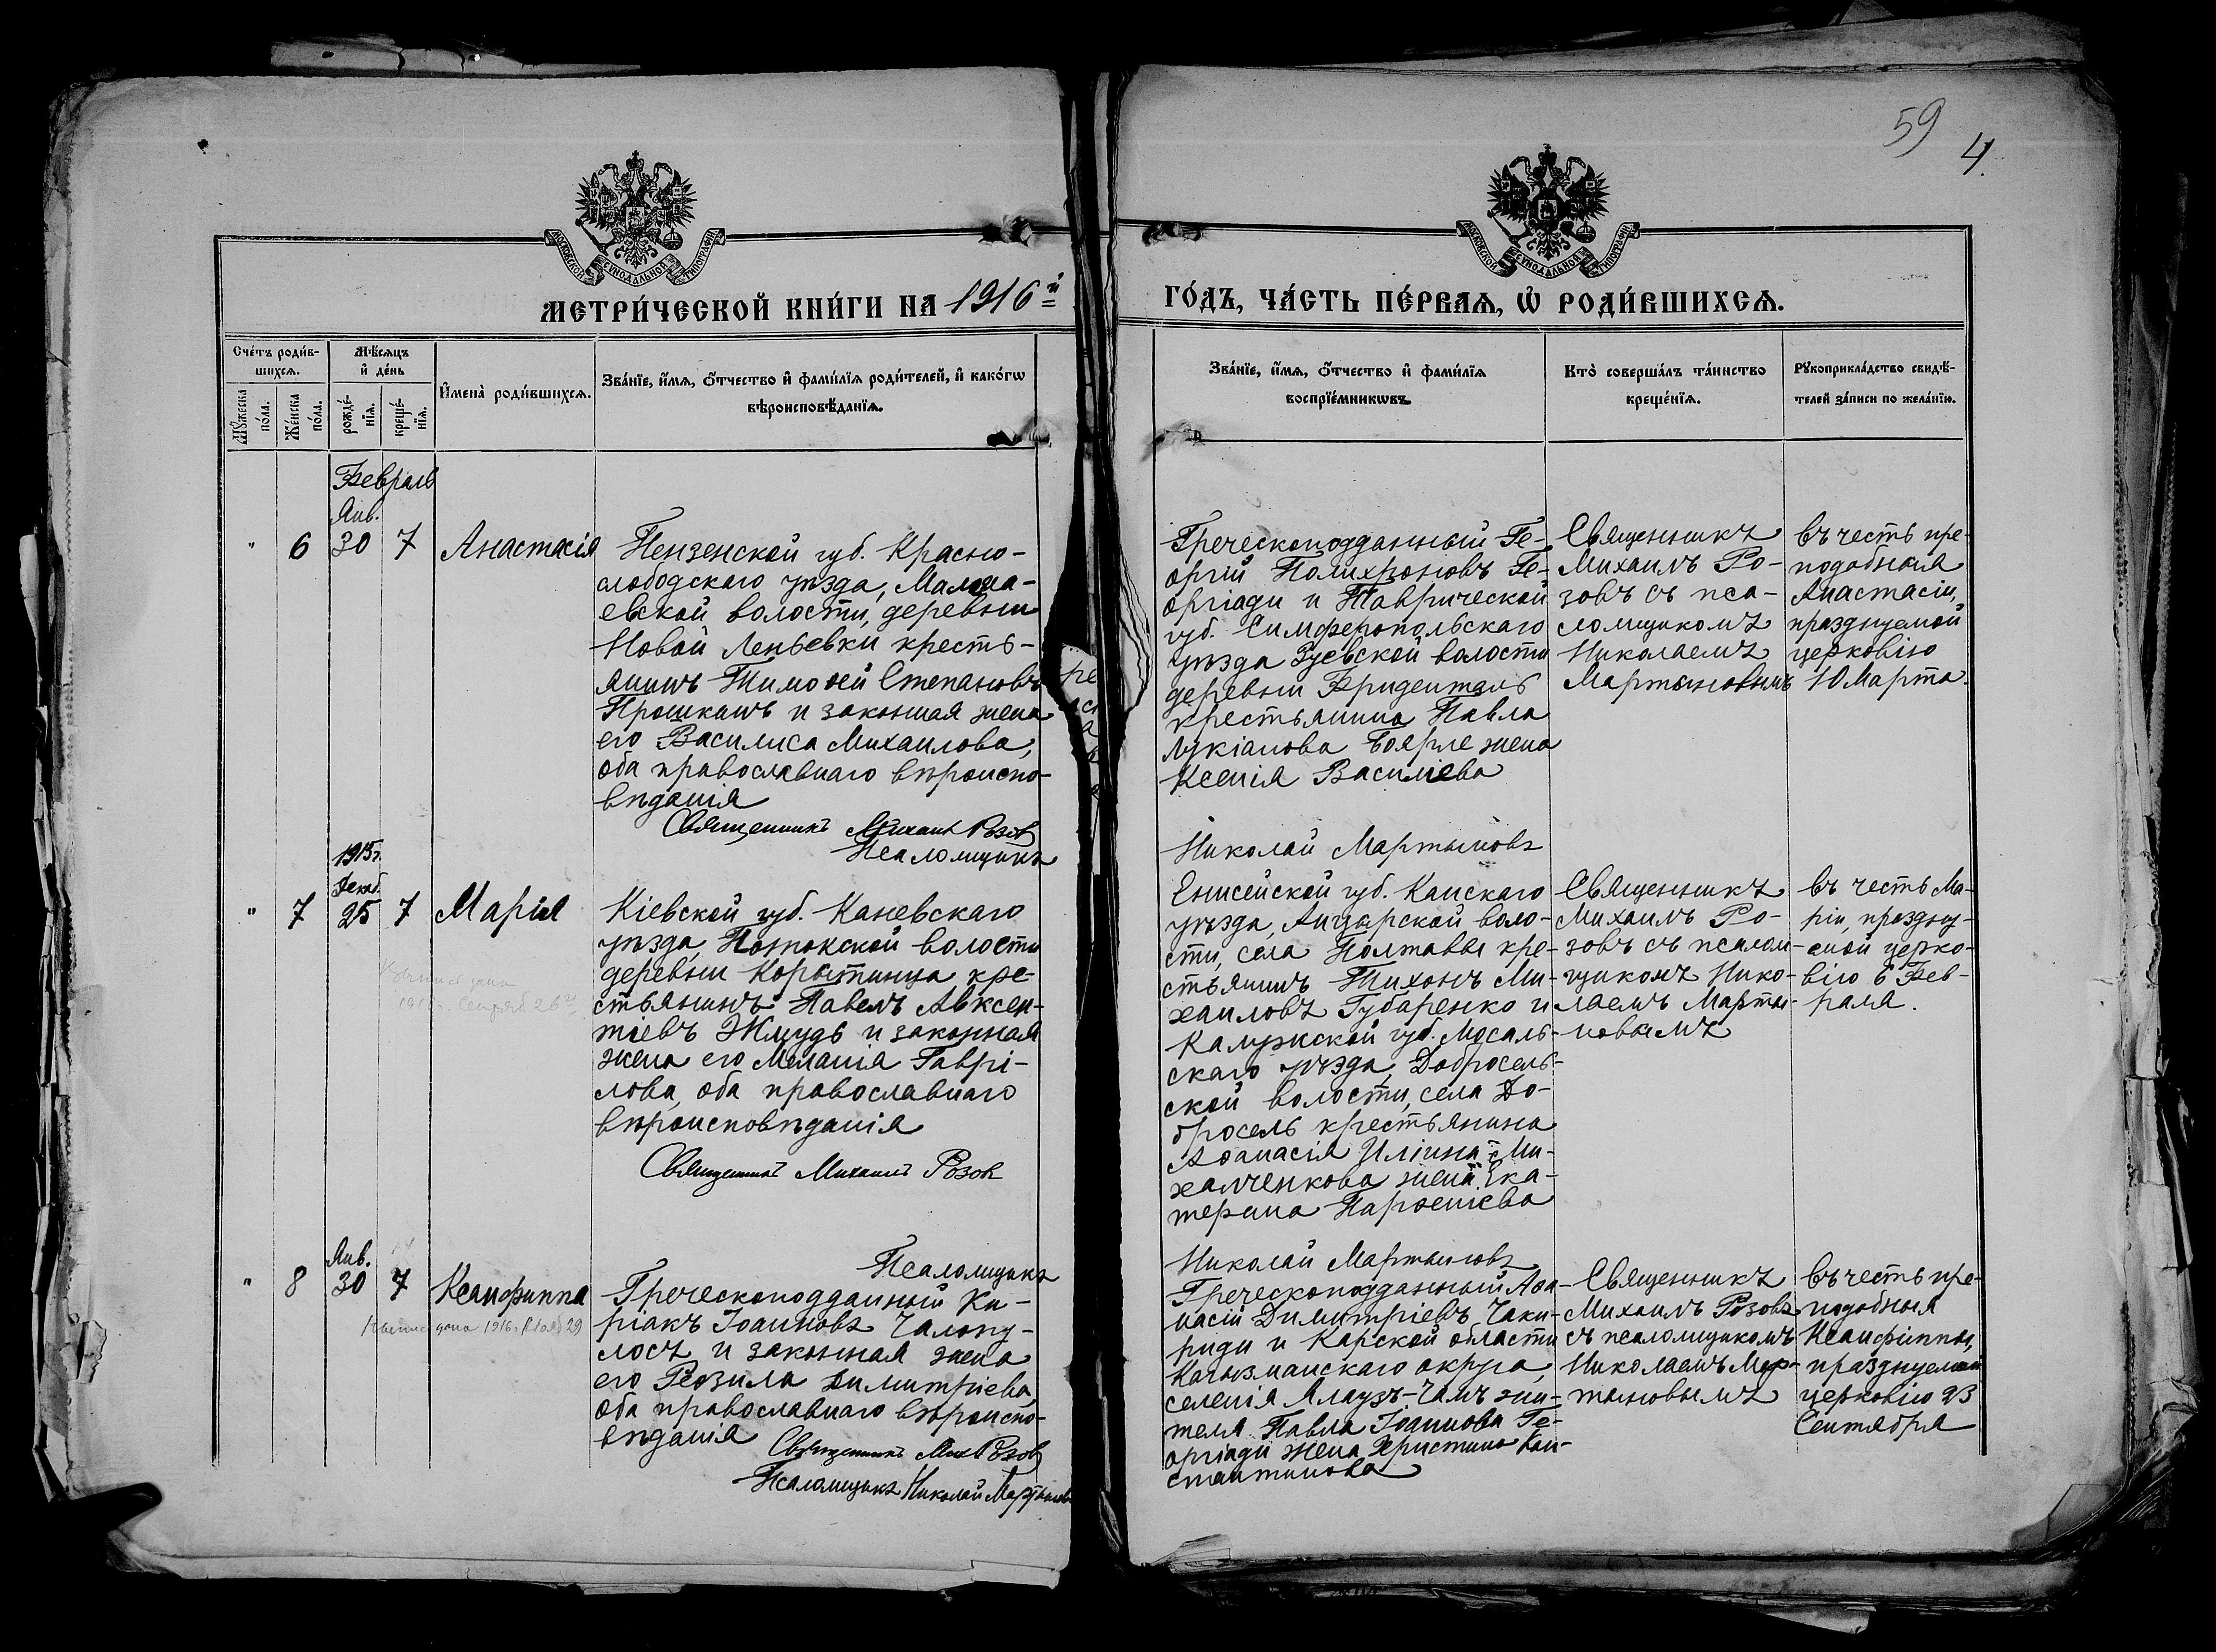 59
4.
МОСКОВСКОЙ СѴНОДАЛЬНОЙ ТИПОГРАФІИ
МОСКОВСКОЙ СѴНОДАЛЬНОЙ ТИПОГРАФІИ
МЕТРИ́ЧЕСКОЙ КНИ́ГИ НА 1916й
ГО́ДЪ, ЧА́СТЬ ПЕ́РВАѦ, Ѡ҆ РОДИ́ВШИХСѦ.
Сче́тъ роди́в-
шихсѧ.
Мꙋ́жеска по́ла.
Же́нска по́ла.
Мѣ́сѧцъ и҆ де́нь
рожде́-
нїѧ.
креще́-
нїѧ.
И҆мена̀ роди́вшихсѧ.
Зва́нїе, и҆́мѧ, ѻ҆́тчество и҆ фами́лїѧ роди́телей, и҆ како́гѡ
вѣроисповѣ́данїѧ.
Зва́нїе, и҆́мѧ, ѻ҆́тчество и҆ фами́лїѧ
воспрїе́мникѡвъ.
Кто̀ соверша́лъ та́инство
креще́нїѧ.
Рꙋкоприкла́дство свидѣ́-
телей за́писи по жела́нїю.
Февраль
Янв.
" 6 30 7 Анастасія
Пензенской губ. Красно-
слободскаго уѣзда, Мамола-
евской волости, деревни
Новой Леньевки кресть-
янинъ Тимоѳей Степановъ
Прошкинъ и законная жена
его Василиса Михаилова,
оба православнаго вѣроиспо-
вѣданія
Священникъ Михаилъ Розовъ
Псаломщикъ
Греческоподданный Ге-
оргій Полихроновъ Ге-
оргіади и Таврической
губ. Симферопольскаго
уѣзда Зуевской волости
деревни Фриденталь
крестьянина Павла
Лукіанова Боярле жена
Ксенія Василіева
Николай Мартыновъ
Священникъ
Михаилъ Ро-
зовъ съ пса-
ломщикомъ
Николаемъ
Мартыновымъ
Въ честь пре-
подобныя
Анастасіи,
празднуемой
церковію
10 Марта.
1915г.
Декаб.
" 7 25 7 Марія
Кіевской губ. Каневскаго
уѣзда, Потокской волости
деревни Коритища кре-
стьянинъ Павелъ Авксен-
тіевъ Жмудь и законная
жена его Меланія Гаврі-
лова, оба православнаго
вѣроисповѣданія
Священникъ Михаилъ Розовъ
Псаломщикъ
Енисейской губ. Канскаго
уѣзда, Анцырской воло-
сти, села Полтавы кре-
стьянинъ Тихонъ Ми-
хаиловъ Губаренко и
Калужской губ. Мосаль-
скаго уѣзда, Добросель-
ской волости, села До-
бросель крестьянина
Аѳанасія Иліина Ми-
халченкова жена Ека-
терина Парѳеніева
Николай Мартыновъ
Священникъ
Михаилъ Ро-
зовъ съ псалом-
щикомъ Нико-
лаемъ Марты-
новымъ
въ честь Ма-
ріи, праздну-
емой церко-
вію 6 Фев-
раля.
Янв.
" 8 30 7 Ксанфиппа
дана 1916г.
Греческоподданный Ки-
ріакъ Іоанновъ Чалопу-
лосъ и законная жена
его Реозила Димитріева,
оба православнаго вѣроиспо-
вѣданія
Священникъ Мих Розовъ
Псаломщикъ Николай Мартыновъ
Греческоподданный Аѳа-
насій Димитріевъ Чаки-
риди и Карской области
Кагызманскаго округа,
селенія Ялаузъ-Чамъ жи-
теля Павла Іоаннова Ге-
оргіади жена Христина Кон-
стантинова
Священникъ
Михаилъ Розовъ
съ псаломщикомъ
Николаемъ Мар-
тыновымъ
въ честь пре-
подобныя
Ксанфиппы,
празднуемой
церковію 23
Сентября